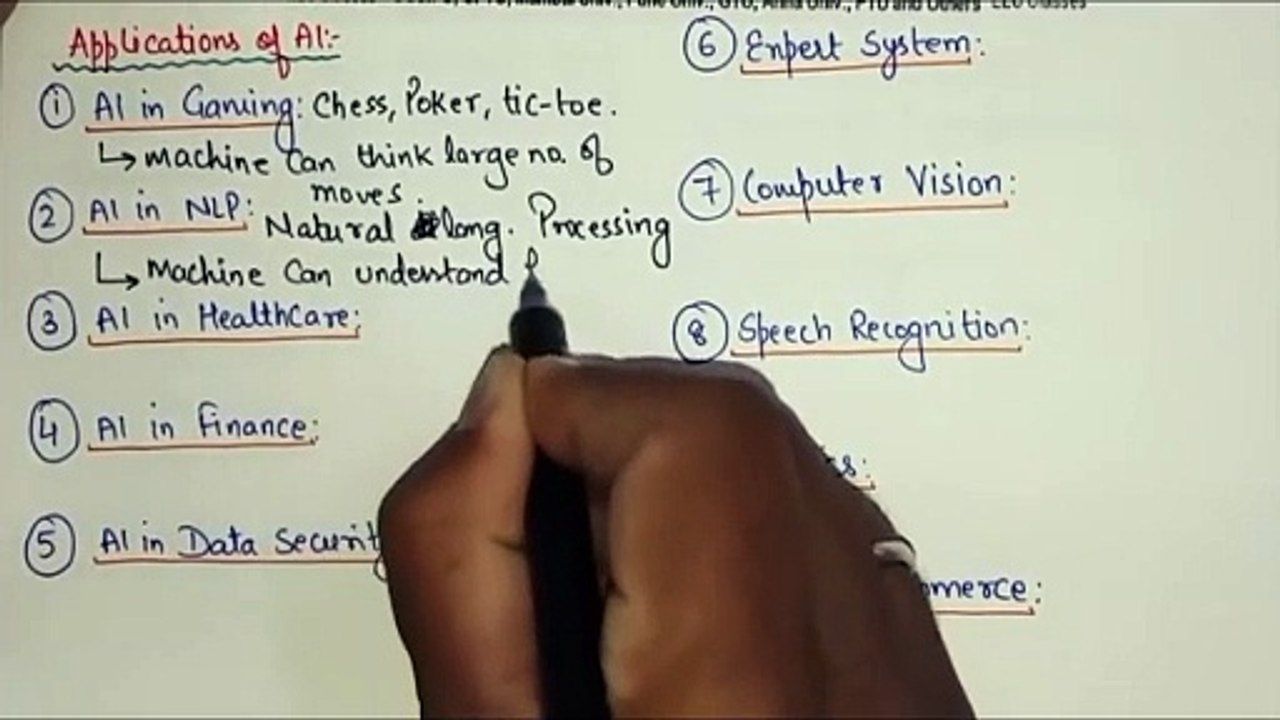 Applications of AI:-
① AI in Gaming: Chess, Poker, tic-toe.
↳ machine Can think large no. of
moves.
② AI in NLP: Natural lang. Processing
↳ Machine Can understand
③ AI in HealthCare:
④ AI in Finance:
⑤ AI in Data Securit
⑥ Expert System:
⑦ Computer Vision:
⑧ Speech Recognition:
cs:
mmerce: